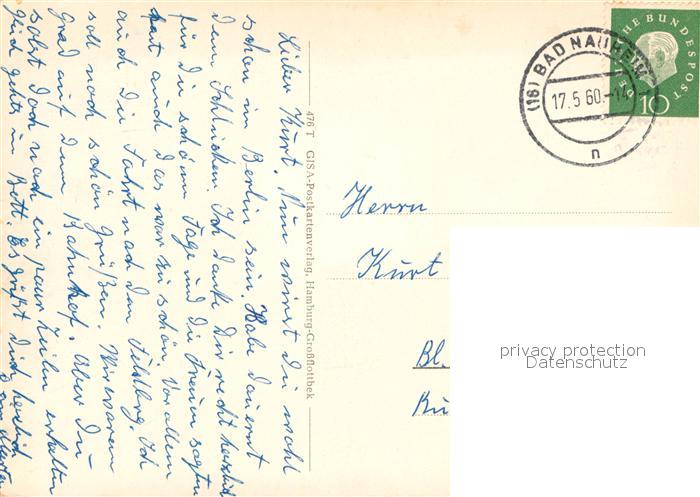 Lieber Kurt. Nun wirst du wohl
schon in Berlin sein. Habe dauernd
dem Schlucken. Ich danke Dir recht herzlich
für die schönen Tage und die Freuen sagte
auch das war zu schön. Vor allem
auch die Fahrt nach dem Feldbrg. Ich
soll noch schön Grüßen. Wir waren
grad auf dem Bahnhof. Aber Du
sollst doch noch ein paar Zeilen erhalten
gehts in Bett. Es grüßt Dich herzlich
476 T GISA-Postkartenverlag, Hamburg-Großflottbek
(16) BAD NAUHEIM
17.5.60.-14
n
DEUTSCHE BUNDESPOST
10
Herrn
Kurt
Bl.
privacy protection
Datenschutz